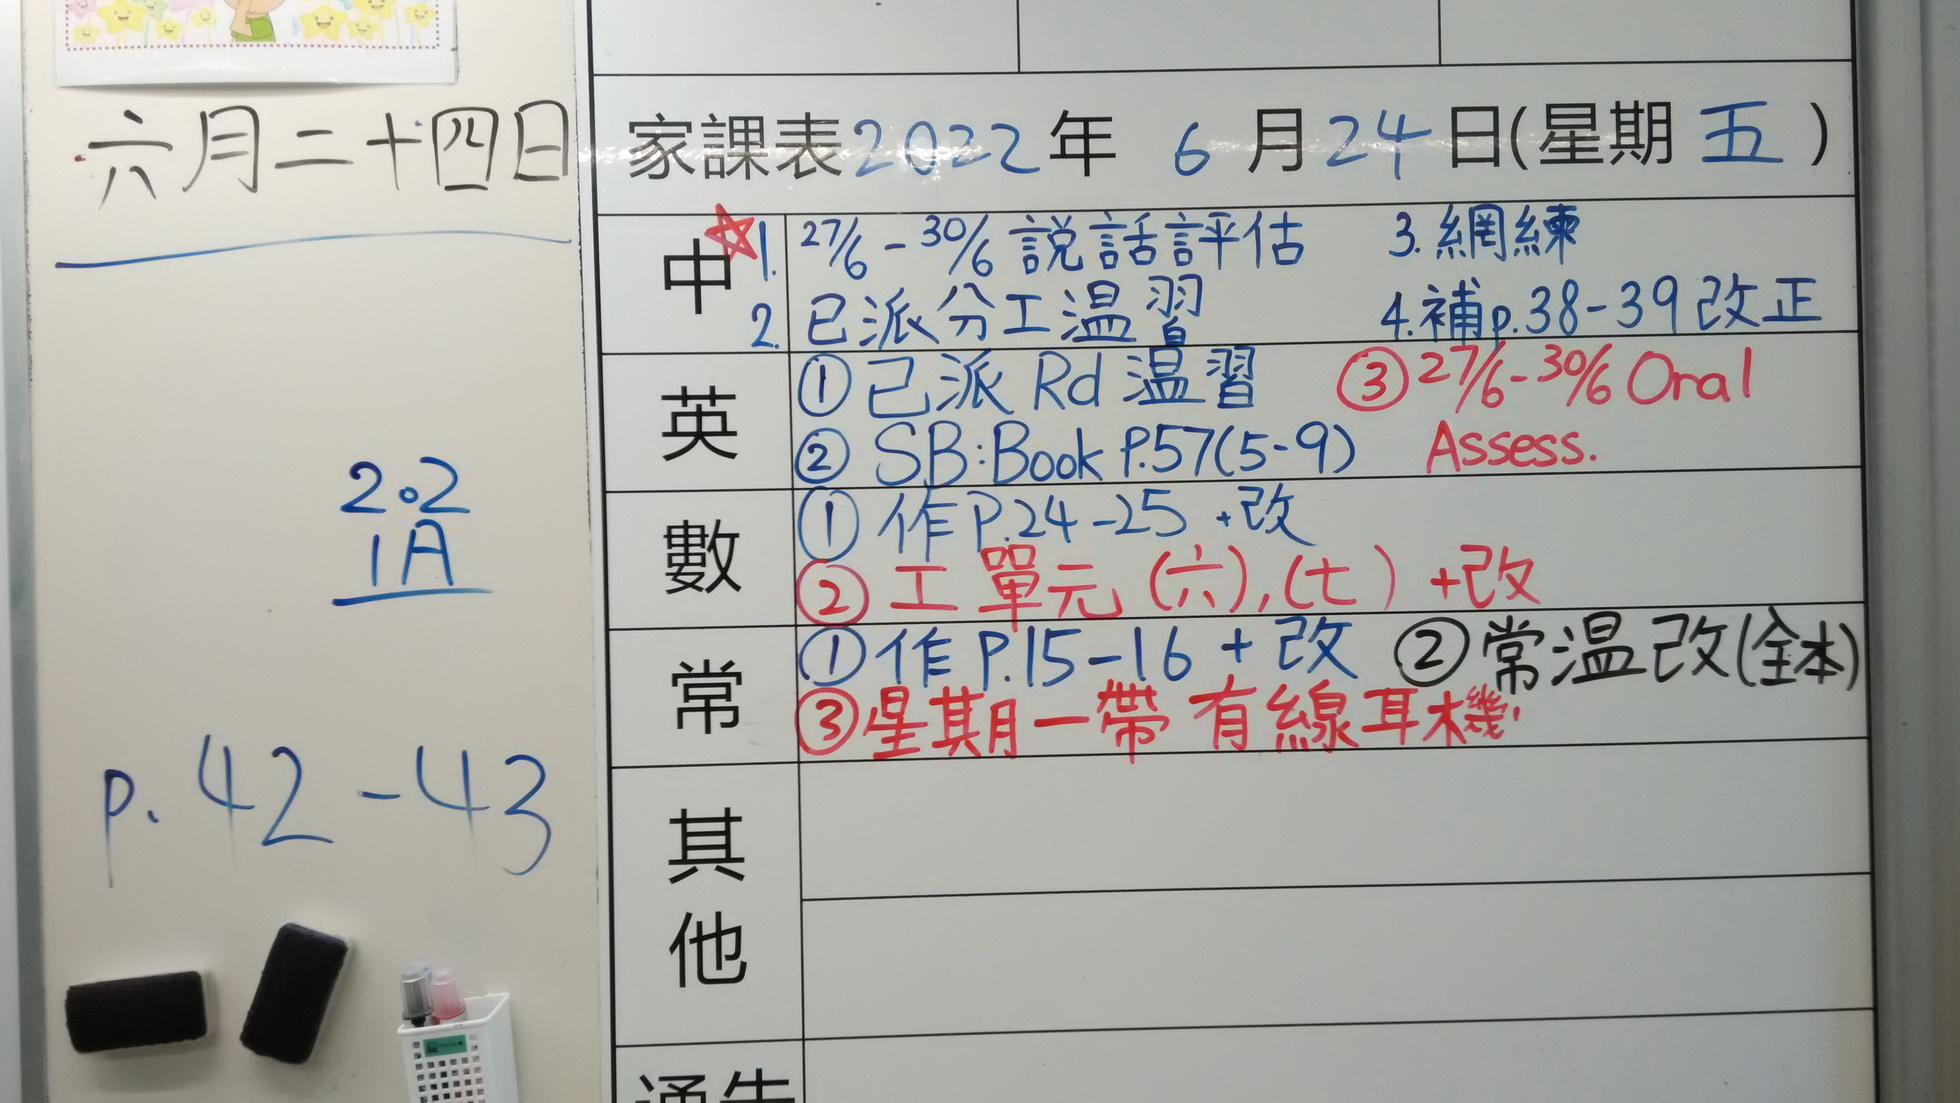 六月二十四日
2.2
1A
p. 42-43
家課表2022年 6月24日(星期五)
中
1. 27/6-30/6 説話評估 3. 網練
2. 已派分工溫習 4. 補p.38-39改正
英
① 已派 Rd 溫習 ③ 27/6-30/6 Oral
② SB:Book P.57(5-9) Assess.
數
① 作P.24-25 +改
② 工 單元 (六),(七) +改
常
① 作 P.15-16 + 改 ② 常溫改(全本)
③ 星期一帶有線耳機
其他
通告